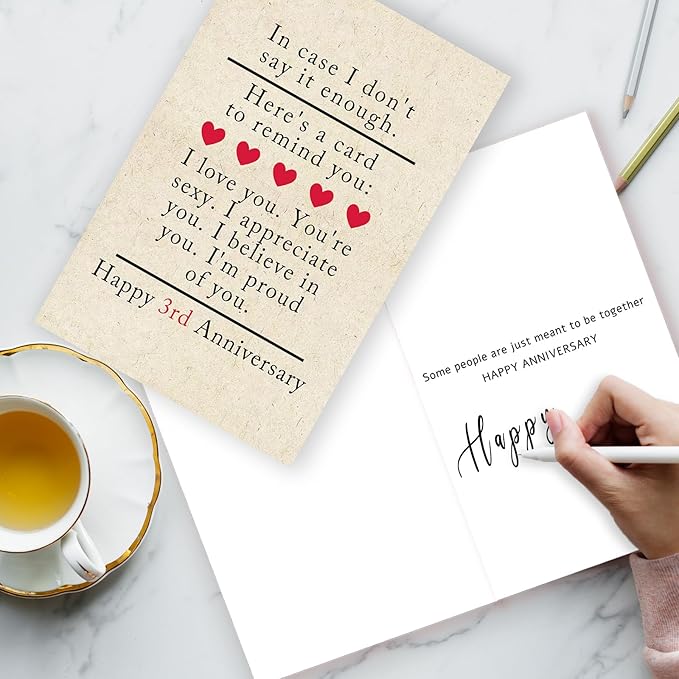 In case I don't
say it enough.
Here's a card
to remind you:
I love you. You're
sexy. I appreciate
you. I believe in
you. I'm proud
of you.
Happy 3rd Anniversary
Some people are just meant to be together
HAPPY ANNIVERSARY
Happy